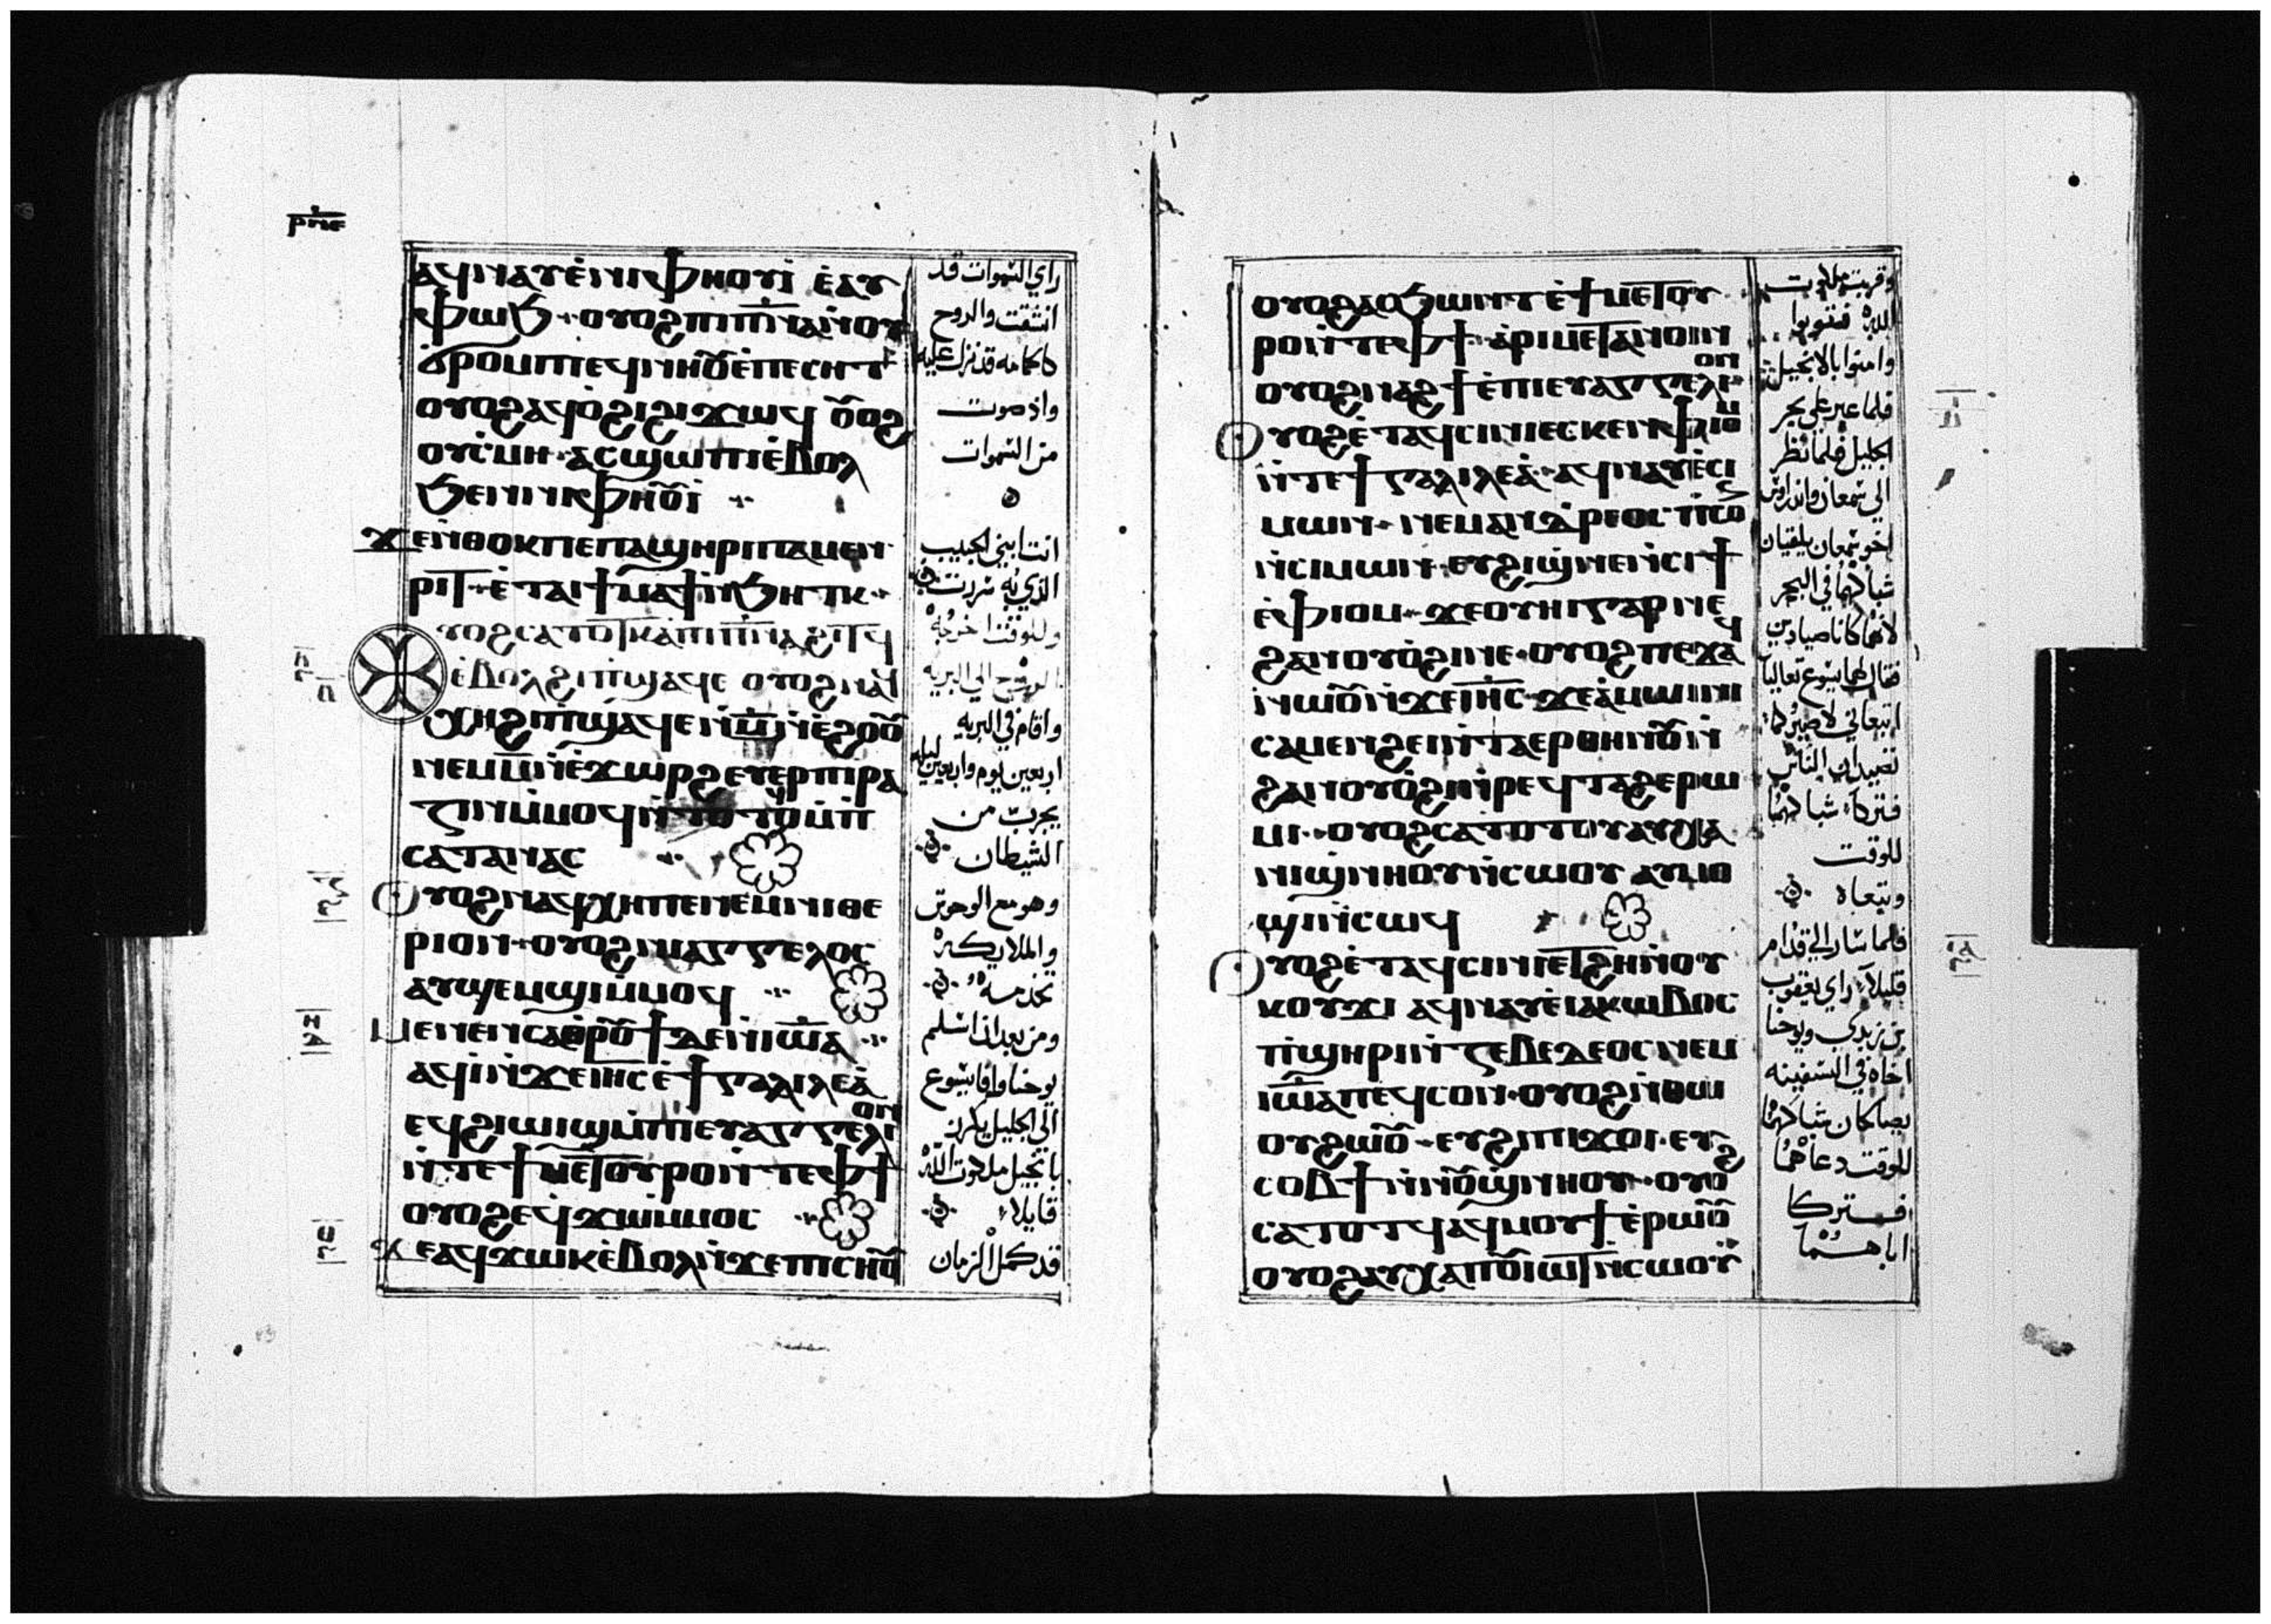 ⲣⲛⲉ
ⲁϥⲛⲁⲩⲉ̀ⲛⲓⲫⲏⲟⲩⲓ̀ ⲉ̀ⲁⲩ
ⲫⲱϧ ⲟⲩⲟϩⲡⲓⲡ̅ⲛ̅ⲁ̅ⲙ̀ⲫⲣⲏϯ
ⲟⲩϭⲣⲟⲙⲡⲓ
ⲟⲩⲟϩⲁϥⲟ̀ϩⲓϩⲓϫⲱϥ ⲟ̅ⲟϩ
ⲟⲩⲥ̀ⲙⲏ ⲁⲥϣⲱⲡⲓⲉ̀ⲃⲟⲗ
ϧⲉⲛⲛⲓⲫⲏⲟ̅ⲓ̀
ϫⲉⲛ̀ⲑⲟⲕⲡⲉⲡⲁϣⲏⲣⲓⲡⲁⲙⲉⲛ
ⲣⲓⲧ ⲉ̀ⲧⲁⲓϯⲙⲁϯⲛ̀ϧⲏⲧⲕ
ⲟⲩⲟϩⲥⲁⲧⲟⲧⲕⲁ̀ⲡⲓⲡ̅ⲛ̅ⲁ̅ϩⲓⲧϥ
ⲉ̀ⲃⲟⲗϩⲓⲡ̀ϣⲁϥⲉ ⲟⲩⲟϩⲛⲁϥ
ⲭⲏϩⲓⲡ̀ϣⲁϥⲉⲛ̀ⲙ̅ⲛ̀ⲉ̀ϩⲟⲟ̅
ⲛⲉⲙⲙ̅ⲛ̀ⲉ̀ϫⲱⲣϩ ⲉⲩⲉⲣⲡⲓⲣⲁ
ⲍⲓⲛⲙ̀ⲙⲟϥ
ⲥⲁⲧⲁⲛⲁⲥ
ⲟⲩⲟϩⲛⲁϥⲭⲏⲡⲉⲛⲉⲙⲛⲓⲑⲉ
ⲣⲓⲟⲛ ⲟⲩⲟϩⲛⲓⲁⲅⲅⲉⲗⲟⲥ
ⲁⲩϣⲉⲙϣⲓⲙ̀ⲙⲟϥ
ⲙⲉⲛⲉⲛⲥⲁⲑⲣⲟ̅ϯⲇⲉⲛ̀ⲓⲱ̅ⲁ
ⲁϥⲓ̀ⲛ̀ϫⲉⲓⲏⲥⲉ̀ϯⲅⲁⲗⲓⲗⲉⲁ̀
ⲉϥϩⲓⲱⲓϣⲙ̀ⲡⲓⲉⲩⲁⲅⲅⲉⲗⲓⲟⲛ
ⲛ̀ⲧⲉϯⲙⲉⲧⲟⲩⲣⲟⲛ̀ⲧⲉⲫϯ
ⲟⲩⲟϩⲉϥϫⲱⲙ̀ⲙⲟⲥ
ϫⲉⲁϥϫⲱⲕⲉ̀ⲃⲟⲗⲛ̀ϫⲉⲡⲓⲥⲏⲟ̅
راي السموات قد
انشقت والروح
كالحمامه قد نزل عليه
واذ صوت
من السموات
انت ابني الحبيب
الذي به سررت
وللوقت اخرجه
الروح الي البريه
واقام في البريه
اربعين يوم واربعين ليله
يجرب من
الشيطان
وهو مع الوحوش
والملايكه
تخدمه
ومن بعد اذ اسلم
يوحنا وافا يسوع
الي الجليل يكرز
بانجيل ملكوت الله
قايلا
قد كمل الزمان
ⲟⲩⲟϩⲁⲥϧⲱⲛⲧⲉ̀ϯⲙⲉⲧⲟⲩ
ⲣⲟⲛ̀ⲧⲉⲫϯ ⲁ̀ⲣⲓⲙⲉⲧⲁⲛⲟⲓⲛ
ⲟⲩⲟϩⲛⲁϩϯⲉ̀ⲡⲓⲉⲩⲁⲅⲅⲉⲗⲓⲟⲛ
ⲟⲩⲟϩⲉ̀ⲧⲁϥⲥⲓⲛⲓⲉⲥⲕⲉⲛⲫⲓⲟⲙ
ⲛ̀ⲧⲉϯⲅⲁⲗⲓⲗⲉⲁ̀ ⲁϥⲛⲁⲩⲉ̀ⲥⲓ
ⲙⲱⲛ ⲛⲉⲙⲁⲛⲇⲣⲉⲟⲥ ⲡⲥⲟ
ⲛ̀ⲥⲓⲙⲱⲛ ⲉⲩϩⲓϣⲛⲉⲛ̀ⲥⲓϯ
ⲉ̀ⲫⲓⲟⲙ ϫⲉⲟⲩⲏⲓⲅⲁⲣⲛⲉ
ϩⲁⲛⲟⲩⲟ̀ϩⲓⲛⲉ ⲟⲩⲟϩⲡⲉϫⲁϥ
ⲛⲱⲟ̅ⲛ̀ϫⲉⲓⲏⲥ ϫⲉⲁ̀ⲙⲱⲓⲛⲓ
ⲥⲁⲙⲉⲛϩⲏⲓⲛ̀ⲧⲁⲉⲣⲑⲏⲛⲟ̅ⲛ̀
ϩⲁⲛⲟⲩⲟ̀ϩⲓⲛ̀ⲣⲉϥⲧⲁϩⲉⲣⲱ
ⲙⲓ ⲟⲩⲟϩⲥⲁⲧⲟⲧⲟⲩⲁⲩⲭⲁ
ⲛⲓϣⲛⲏⲟⲩⲛ̀ⲥⲱⲟⲩ ⲁⲩⲙⲟ
ϣⲓⲛ̀ⲥⲱϥ
ⲟⲩⲟϩⲉ̀ⲧⲁϥⲥⲓⲛⲓⲉⲧϩⲏⲛ̀ⲟⲩ
ⲕⲟⲩϫⲓ ⲁϥⲛⲁⲩⲉ̀ⲓⲁⲕⲱⲃⲟⲥ
ⲡ̀ϣⲏⲣⲓⲛ̀ⲍⲉⲃⲉⲇⲉⲟⲥ ⲛⲉⲙ
ⲓⲱ̅ⲁⲡⲉϥⲥⲟⲛ ⲟⲩⲟϩⲛ̀ⲑⲱ
ⲟⲩϩⲱⲟ̅ ⲉⲩϩⲓⲡⲓϫⲟⲓ ⲉⲩ
ⲥⲟⲃϯⲛ̀ⲛⲟ̅ϣⲛⲏⲟⲩ ⲟⲩⲟϩ
ⲥⲁⲧⲟⲧϥⲁϥⲙⲟⲩϯⲉ̀ⲣⲱⲟ̅
ⲟⲩⲟϩⲁⲩⲭⲁⲡⲟ̅ⲓⲱⲧⲛ̀ⲥⲱⲟⲩ
وقربت ملكوت
الله فتوبوا
وامنوا بالانجيل
فلما عبر علي بحر
الجليل فلما نظر
الي سمعان واندراوس
اخو سمعان يلقيان
شباكهما في البحر
لانهما كانا صيادين
فقال لهما يسوع تعاليا
اتبعاني لاصيركما
تصيدان الناس
فتركا شباكهما
للوقت
وتبعاه
فلما سار الي قدام
قليلا راي يعقوب
بن زبدي ويوحنا
اخاه في السفينه
يصلحان شباكهما
للوقت دعاهما
فتركا
اباهما